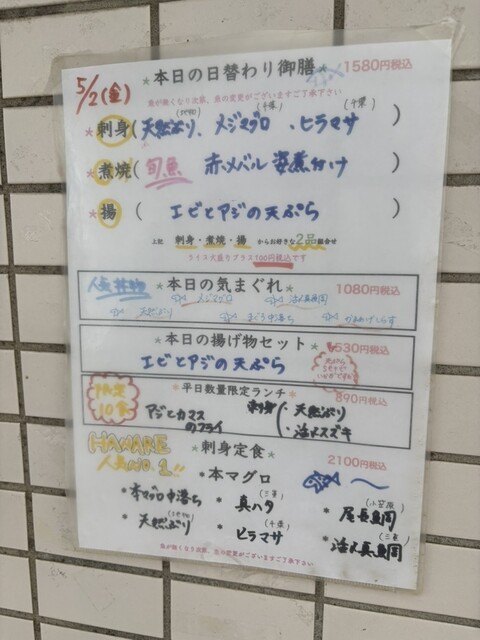 5/2(金)
*本日の日替わり御膳* 1580円税込
魚が無くなり次第、魚の変更がございますご了承下さい
(千葉) (千葉)
*刺身(天然ぶり、メジマグロ、ヒラマサ)
*煮焼(旬魚 赤メバル 姿煮付け)
*揚(エビとアジの天ぷら)
上記 刺身・煮焼・揚 からお好きな2品組合せ
ライス大盛りプラス100円税込です
人気 *本日の気まぐれ* 1080円税込
メジマグロ 活〆真鯛
天然ぶり まぐろ中落ち 釜あげしらす
*本日の揚げ物セット* 530円税込
エビとアジの天ぷら
限定10食
*平日数量限定ランチ* 890円税込
アジとカマスのフライ
刺身(・天然ぶり
・活〆スズキ
HANARE
人気NO.1!!
*刺身定食* 2100円税込
*本マグロ
*本マグロ中落ち *真ハタ(三重) *尾長鯛(小笠原)
*天然ぶり *ヒラマサ(千葉) *活〆真鯛(三重)
魚が無くなり次第、魚の変更がございますご了承下さい